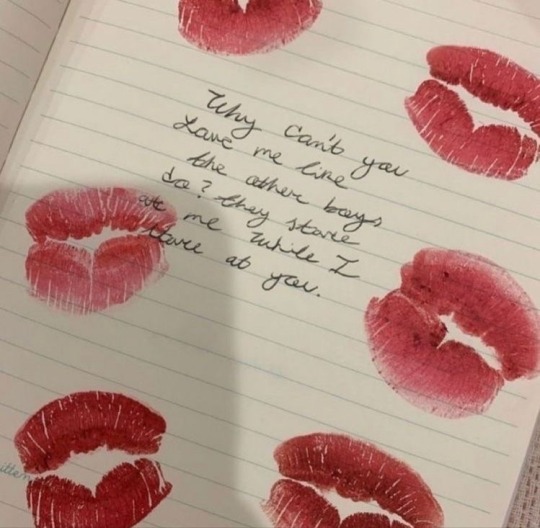 Why can't you
Love me like
the other boys
do? they stare
at me while I
stare at you.
itten